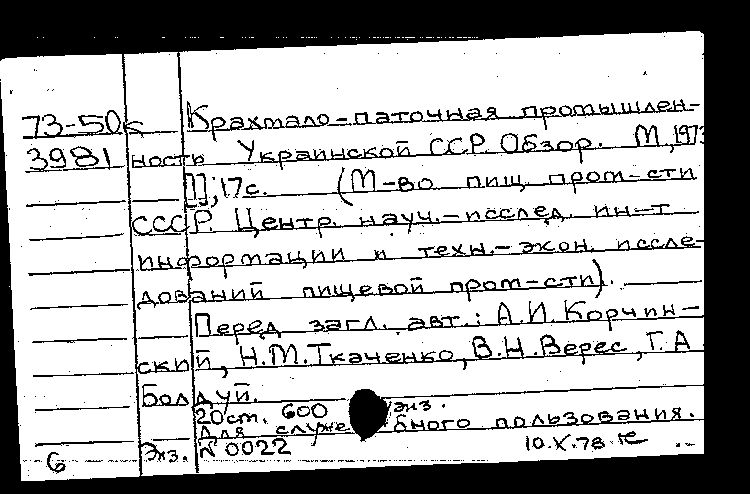 73-50к Крахмало-паточная промышлен-
3981 ность Украинской ССР. Обзор. М., 1973
[1], 17с. (М-во пищ. пром-сти
СССР. Центр. науч.-исслед. ин-т
информации и техн.-экон. иссле-
дований пищевой пром-сти).
Перед загл. авт.: А.И.Корчин-
ский, Н.М.Ткаченко, В.Н.Верес, Г.А
Болдуй.
20 ст. 600 экз.
Для служебного пользования.
6 Экз. №0022 10.X.78